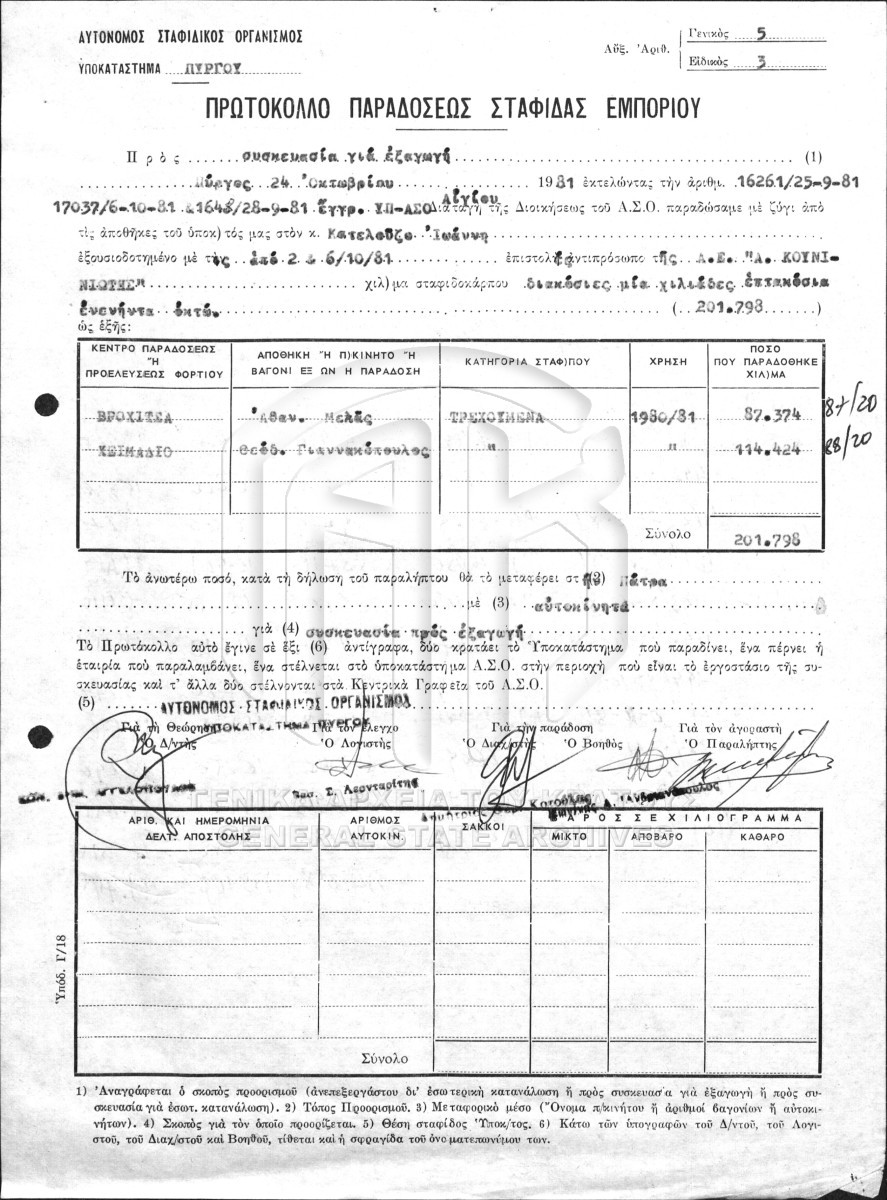 ΑΥΤΟΝΟΜΟΣ ΣΤΑΦΙΔΙΚΟΣ ΟΡΓΑΝΙΣΜΟΣ
ΥΠΟΚΑΤΑΣΤΗΜΑ ΠΥΡΓΟΥ
Αὔξ. Ἀριθ.
Γενικὸς 5
Εἰδικὸς 3
ΠΡΩΤΟΚΟΛΛΟ ΠΑΡΑΔΟΣΕΩΣ ΣΤΑΦΙΔΑΣ ΕΜΠΟΡΙΟΥ
Πρὸς συσκευασία γιά ἐξαγωγή (1)
Πύργος 24 Ὀκτωβρίου 1981 ἐκτελώντας τὴν ἀριθμ. 16261/25-9-81
17037/6-10-81 & /28-9-81 ἔγγρ. ΥΠ-ΑΣΟ Αἰγίου Διαταγὴ τῆς Διοικήσεως τοῦ Α.Σ.Ο. παραδώσαμε μὲ ζύγι ἀπὸ
τὶς ἀποθῆκες τοῦ ὑποκ)τός μας στὸν κ. Κατελοῦζο Ἰωάννη
ἐξουσιοδοτημένο μὲ τὶς ἀπό 2 & 6/10/81 ἐπιστολὲς ἀντιπρόσωπο τῆς Α.Ε. "Α. ΚΟΥΝΙ-
ΝΙΩΤΗΣ" χιλ)μα σταφιδοκάρπου διακόσιες μία χιλιάδες ἑπτακόσια
ἐνενήντα ὀκτώ. (201.798)
ὡς ἑξῆς:
ΚΕΝΤΡΟ ΠΑΡΑΔΟΣΕΩΣ Ἤ ΠΡΟΕΛΕΥΣΕΩΣ ΦΟΡΤΙΟΥ
ΑΠΟΘΗΚΗ Ἤ Π)ΚΙΝΗΤΟ Ἤ ΒΑΓΟΝΙ ΕΞ ΩΝ Η ΠΑΡΑΔΟΣΗ
ΚΑΤΗΓΟΡΙΑ ΣΤΑΦ)ΠΟΥ
ΧΡΗΣΗ
ΠΟΣΟ ΠΟΥ ΠΑΡΑΔΟΘΗΚΕ ΧΙΛ)ΜΑ
ΒΡΟΧΙΤΣΑ Ἀθαν. Μελᾶς ΤΡΕΧΟΥΜΕΝΑ 1980/81 87.374 87/20
ΧΕΙΜΑΔΙΟ Θεόδ. Γιαννακόπουλος " " 114.424 88/20
Σύνολο 201.798
Τὸ ἀνωτέρω ποσό, κατὰ τὴ δήλωση τοῦ παραλήπτου θὰ τὸ μεταφέρει στ ή(2) Πάτρα
μὲ (3) αὐτοκίνητά
γιὰ (4) συσκευασία πρός ἐξαγωγή
Τὸ Πρωτόκολλο αὐτὸ ἔγινε σὲ ἕξι (6) ἀντίγραφα, δύο κρατάει τὸ Ὑποκατάστημα ποὺ παραδίνει, ἕνα πέρνει ἡ
ἑταιρία ποὺ παραλαμβάνει, ἕνα στέλνεται στὸ ὑποκατάστημα Α.Σ.Ο. στὴν περιοχὴ ποὺ εἶναι τὸ ἐργοστάσιο τῆς συ-
σκευασίας καὶ τ' ἄλλα δύο στέλνονται στὰ Κεντρικὰ Γραφεῖα τοῦ Α.Σ.Ο.
(5) ΑΥΤΟΝΟΜΟΣ ΣΤΑΦΙΔΙΚΟΣ ΟΡΓΑΝΙΣΜΟΣ
ΥΠΟΚΑΤΑΣΤΗΜΑ ΠΥΡΓΟΥ
Γιὰ τὴ Θεώρηση Γιὰ τὸν ἔλεγχο Γιὰ τὴν παράδοση Γιὰ τὸν ἀγοραστὴ
Ὁ Δ/ντὴς Ὁ Λογιστὴς Ὁ Διαχ/στὴς Ὁ Βοηθὸς Ὁ Παραλήπτης
ΑΓΓΕΛΟΠΟΥΛΟΣ
Βασ. Σ. Λεονταρίτης
ΓΕΝΙΚΑ ΑΡΧΕΙΑ ΤΟΥ ΚΡΑΤΟΥΣ
GENERAL STATE ARCHIVES
ΑΡΙΘ. ΚΑΙ ΗΜΕΡΟΜΗΝΙΑ ΔΕΛΤ. ΑΠΟΣΤΟΛΗΣ
ΑΡΙΘΜΟΣ ΑΥΤΟΚΙΝ.
ΣΑΚΚΟΙ
ΒΑΡΟΣ ΣΕ ΧΙΛΙΟΓΡΑΜΜΑ
ΜΙΚΤΟ ΑΠΟΒΑΡΟ ΚΑΘΑΡΟ
Σύνολο
Ὑπόδ. Γ/18
1) Ἀναγράφεται ὁ σκοπὸς προορισμοῦ (ἀνεπεξεργάστου δι' ἐσωτερικὴ κατανάλωση ἢ πρὸς συσκευασία γιὰ ἐξαγωγὴ ἢ πρὸς συ-
σκευασία γιὰ ἐσωτ. κατανάλωση). 2) Τόπος Προορισμοῦ. 3) Μεταφορικὸ μέσο (Ὄνομα π/κινήτου ἢ ἀριθμοὶ βαγονίων ἢ αὐτοκι-
νήτων). 4) Σκοπὸς γιὰ τὸν ὁποῖο προορίζεται. 5) Θέση σταφίδος Ὑποκ/τος. 6) Κάτω τῶν ὑπογραφῶν τοῦ Δ/ντοῦ, τοῦ Λογι-
στοῦ, τοῦ Διαχ/στοῦ καὶ Βοηθοῦ, τίθεται καὶ ἡ σφραγίδα τοῦ ὀνοματεπωνύμου των.